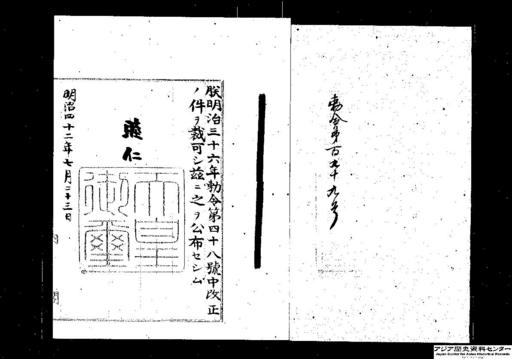 勅令第百九十九号
朕明治三十六年勅令第四十八號中改正
ノ件ヲ裁可シ茲ニ之ヲ公布セシム
睦仁
天皇御璽
明治四十二年七月二十三日
アジア歴史資料センター
Japan Center for Asian Historical Records